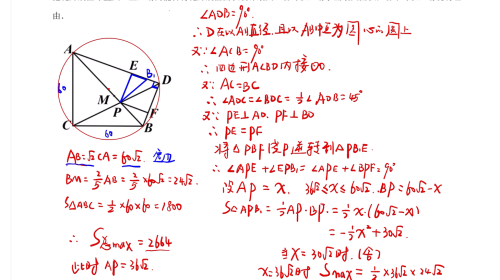 由.
A
E
B₁
D
60
M
P
F
C
60
B
AB=√2CA=60√2. 定圆
BM=2/5AB=2/5×60√2=24√2
S△ABC=1/2×60×60=1800
∴ Smax=2664
此时 AP=36√2.
∠ADB=90°
∴D在以AB为直径,且以AB中点为圆心的圆上
又∵∠ACB=90°
∴四边形ACBD内接⊙
又∵AC=BC
∴∠ADC=∠BDC=1/2∠ADB=45°
又∵PE⊥AD. PF⊥BD
∴PE=PF
将△PBF绕P逆转到△PB₁E.
∴∠APE+∠EPB₁=∠APE+∠BPF=90°
设AP=x. 36√2≤x≤60√2. BP=60√2-x
S△APB₁=1/2AP·BP=1/2x·(60√2-x)
=-1/2x²+30√2.
当x=30√2时.(舍)
x=36√2时 Smax=1/2×36√2×24√2